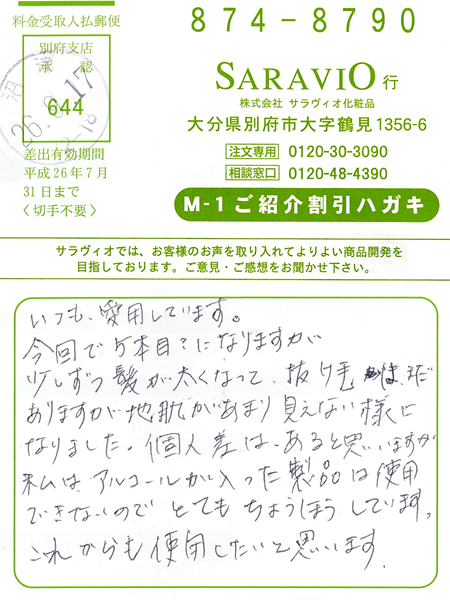 料金受取人払郵便
別府支店
承認
644
差出有効期間
平成26年7月
31日まで
〈切手不要〉
874-8790
SARAVIO 行
株式会社 サラヴィオ化粧品
大分県別府市大字鶴見1356-6
注文専用 0120-30-3090
相談窓口 0120-48-4390
M-1ご紹介割引ハガキ
サラヴィオでは、お客様のお声を取り入れてよりよい商品開発を
目指しております。ご意見・ご感想をお聞かせ下さい。
いつも、愛用しています。
今回で5本目?になりますが
少しずつ髪が太くなって、抜け毛は、まだ
ありますが地肌があまり見えない様に
なりました。個人差は、あると思いますが
私はアルコールが入った製品は使用
できないのでとてもちょうほうしています。
これからも使用したいと思います。